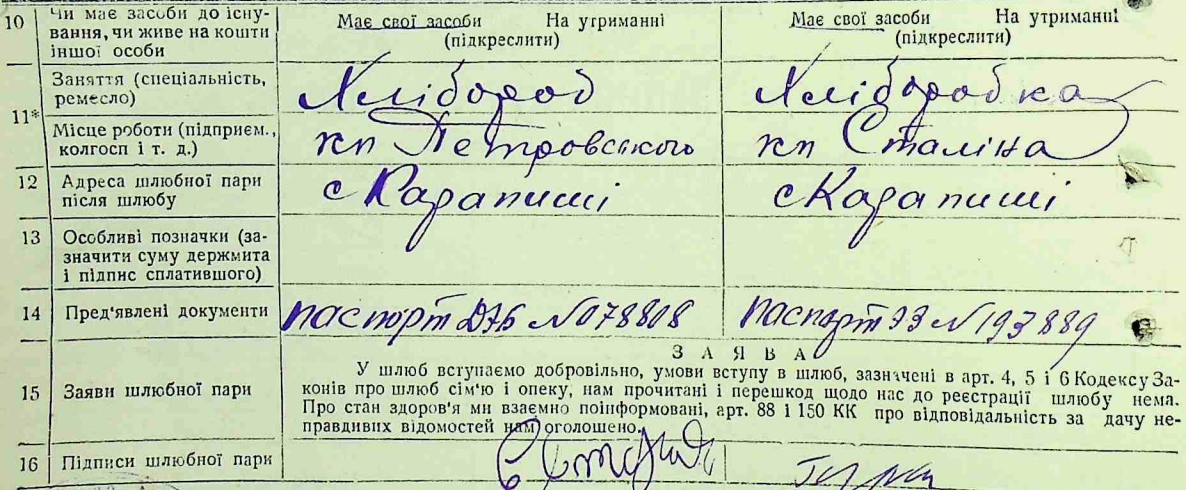 10 Чи має засоби до існування, чи живе на кошти іншої особи
Має свої засоби На утриманні
(підкреслити)
Має свої засоби На утриманні
(підкреслити)
11* Заняття (спеціальність, ремесло)
Хлібороб
Хліборобка
Місце роботи (підприєм., колгосп і т. д.)
кп Петровського
кп Сталіна
12 Адреса шлюбної пари після шлюбу
с Карапиші
с Карапиші
13 Особливі позначки (зазначити суму держмита і підпис сплатившого)
14 Пред'явлені документи
паспорт №078808
паспорт №193889
ЗАЯВА
15 Заяви шлюбної пари
У шлюб вступаємо добровільно, умови вступу в шлюб, зазначені в арт. 4, 5 і 6 Кодексу За-
конів про шлюб сім'ю і опеку, нам прочитані і перешкод щодо нас до реєстрації шлюбу нема.
Про стан здоров'я ми взаємно поінформовані, арт. 88 і 150 КК про відповідальність за дачу не-
правдивих відомостей нам оголошено.
16 Підписи шлюбної пари